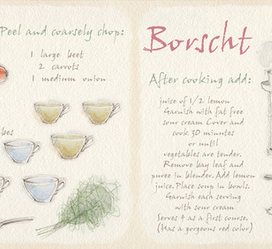 Peel and coarsely chop:
1 large beet
2 carrots
1 medium onion
bes
Borscht
After cooking add:
juice of 1/2 lemon
Garnish with fat free
sour cream Cover and
cook 30 minutes
or until
vegetables are tender.
Remove bay leaf and
puree in blender. Add lemon
juice. Place soup in bowls.
Garnish each serving
with sour cream
Serves 4 as a first course.
(Has a gorgeous red color)